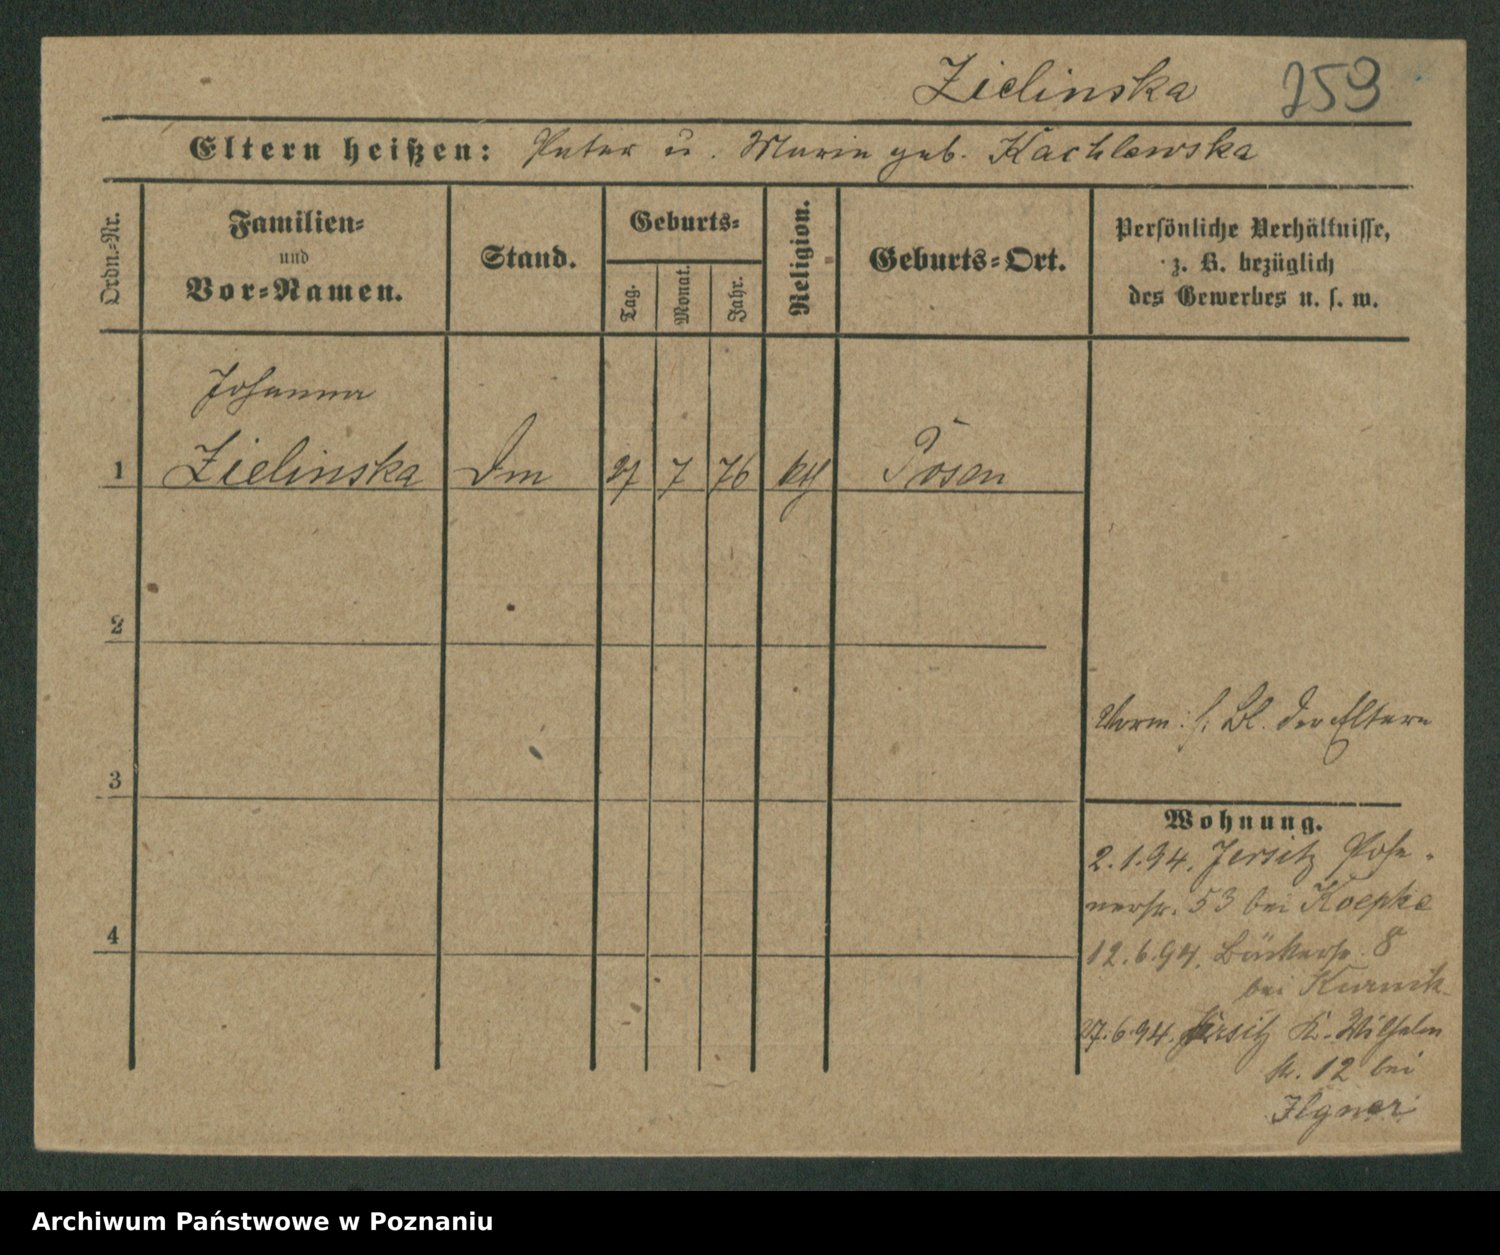 Zielinska 253
Eltern heißen: Peter u. Marie geb. Kachlewska
Ordn.=Nr.
Familien=
und
Vor=Namen.
Stand.
Geburts=
Tag.
Monat.
Jahr.
Religion.
Geburts=Ort.
Persönliche Verhältnisse,
z. B. bezüglich
des Gewerbes u. s. w.
Johanna
1 Zielinska Dm 27 7 76 kth Posen
2
3
4
Vorm: s. Bl. der Eltern
Wohnung.
2.1.94. Jersitz Pose-
nerstr. 53 bei Koepke
12.6.94. Bäckerstr. 8
bei Kurnik
27.6.94. Jersitz K. Wilhelm
str. 12 bei
Ilgner
Archiwum Państwowe w Poznaniu